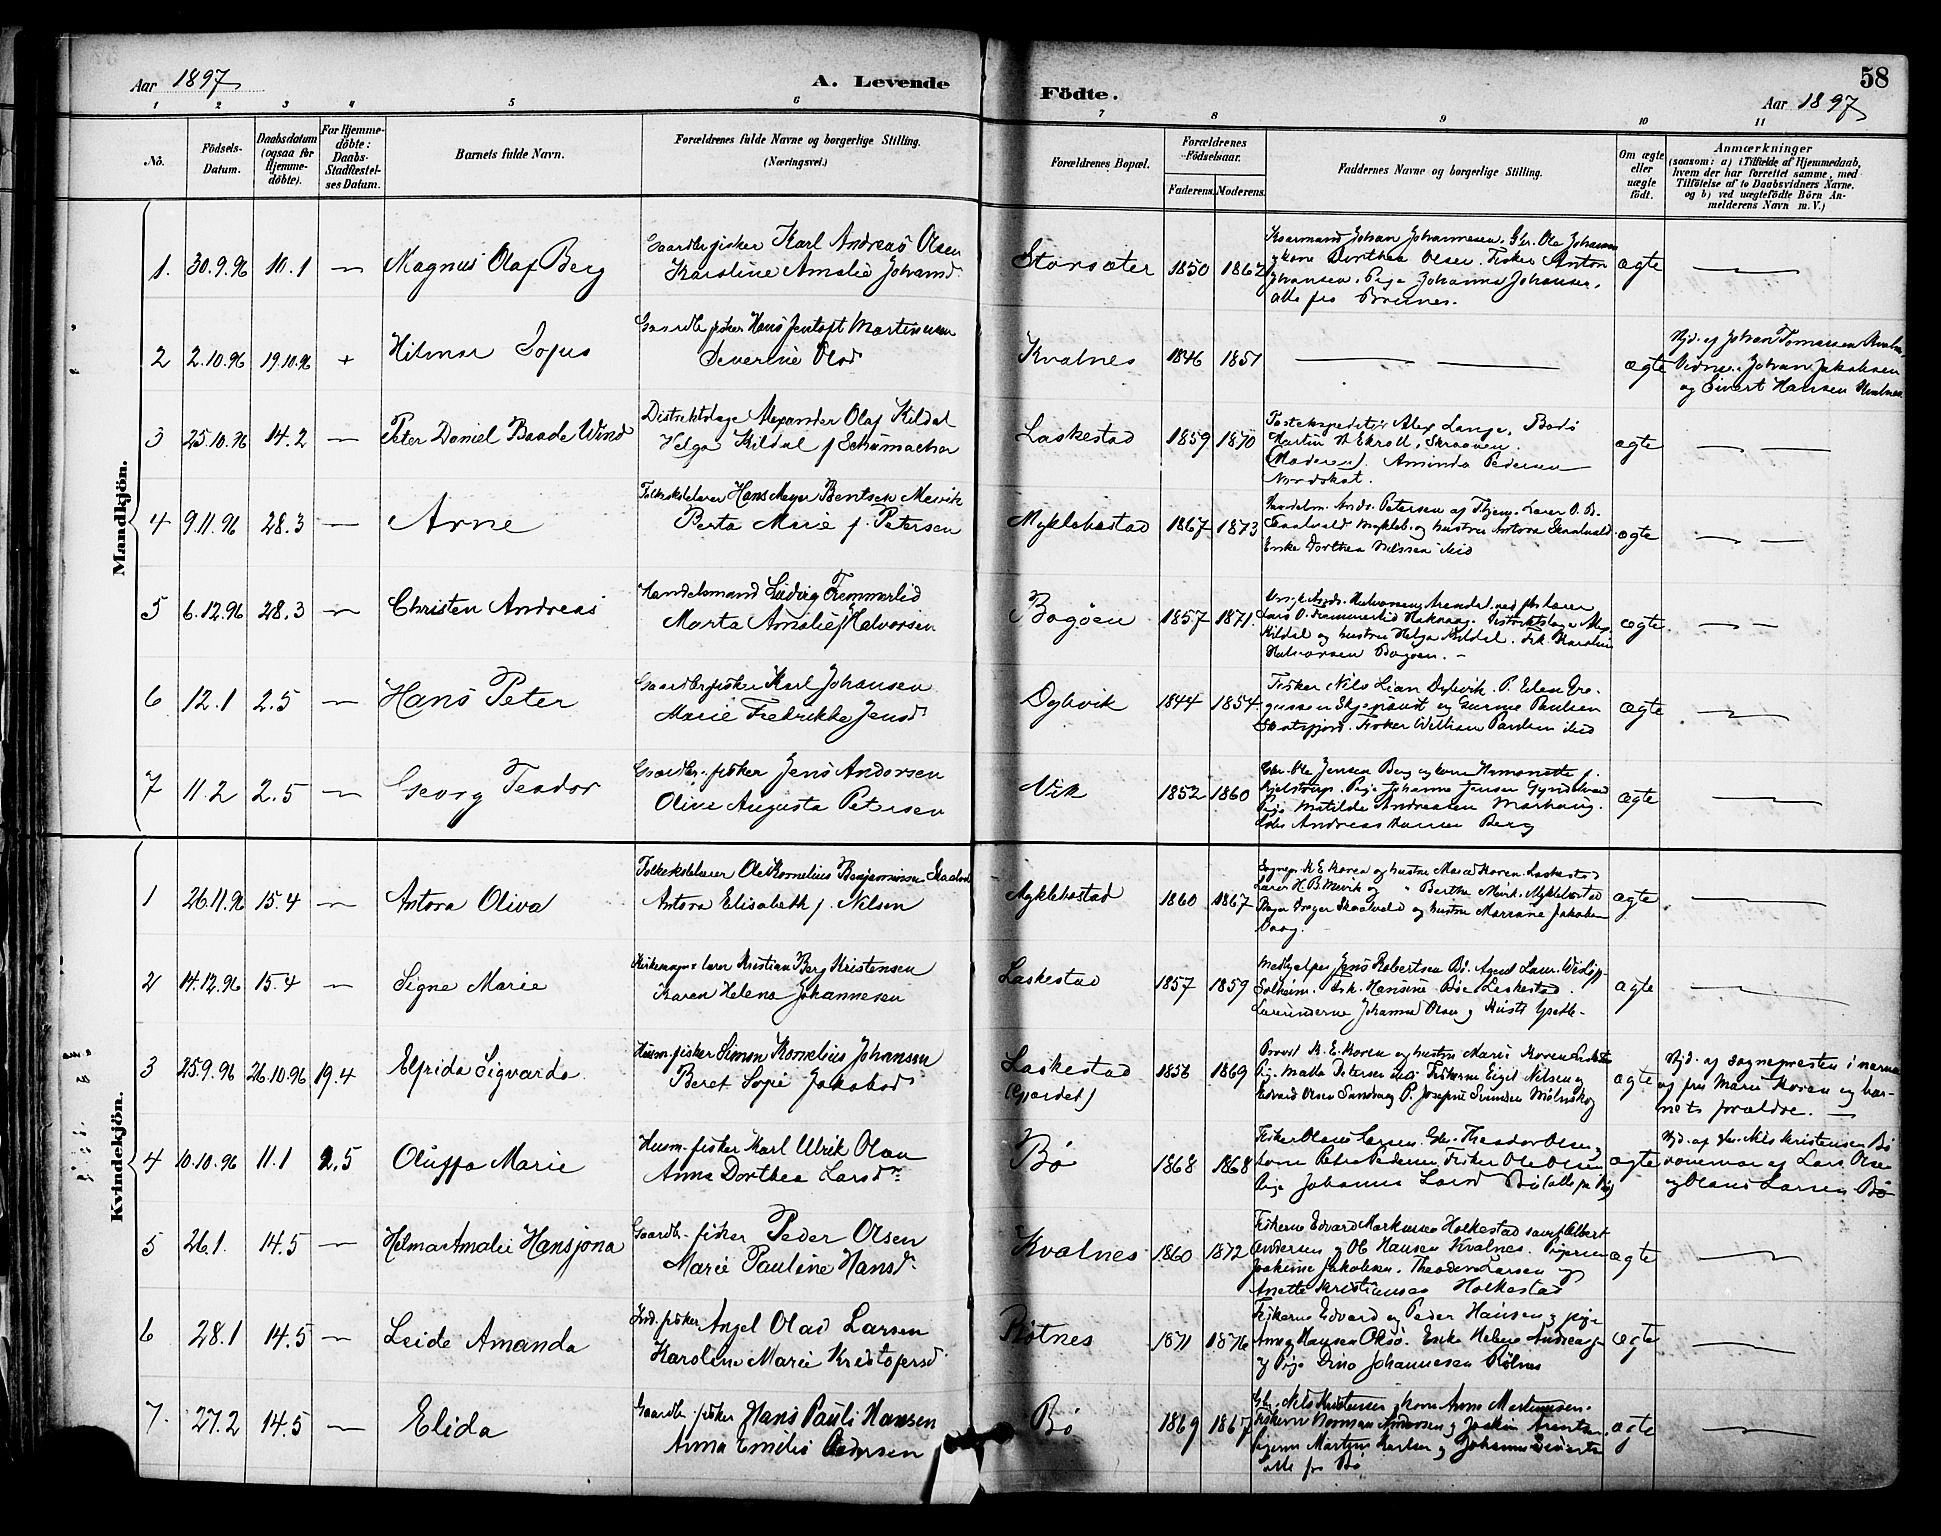 Aar 1897
A. Levende
Födte.
Aar 1897
58
1 2 3 4 5 6 7 8 9 10 11
No.
Födsels-
Datum.
Daabsdatum
(ogsaa for
Hjemme-
döbte).
For Hjemme-
döbte:
Daabs-
Stadfæstel-
ses Datum.
Barnets fulde Navn.
Forældrenes fulde Navne og borgerlige Stilling.
(Næringsvei.)
Forældrenes Bopæl.
Forældrenes
Födselsaar.
Faderens. Moderens.
Faddernes Navne og borgerlige Stilling.
Om ægte
eller
uægte
födt.
Anmærkninger
(saasom: a) i Tilfælde af Hjemmedaab,
hvem der har forrettet samme, med
Tilföielse af to Daabsvidners Navne.
og b) ved uægtefödte Börn An-
melderens Navn m. V.)
Mandkjön.
1. 30.9.96 10.1 — Magnus Olaf Berg
Gaardbr fisker Karl Andreas Olsen
Karoline Amalie Johansd.
Storsæter 1850 1862
Johan Johannesen, Gbr. Ole Johansen
kone Dorthea Olsen. Fisker Anton
Johansen. Pige Johanna Johansen,
alle fra
ægte —
2 2.10.96 19.10.96 + Hilmar Sofus
Gaardbr fisker Hans Jentoft Martinussen
Severine Olsd
Kvalnes 1846 1851 — —
ægte
Hjd. af Johan Tomassen Kvalnes,
Vidner: Johan Jakobsen
og Eivert Hansen Kvalnes
3 25.10.96 14.2 — Peter Daniel Baade Wind
Distriktslæge Alexander Olaf Kildal
Helga Kildal f Schumacher
Laskestad 1859 1870
Postekspeditør Alex Lange, Bodø
Martin H Ekroll, Skraaven
(Moderen). Aminda Pedersen
Nordskot.
ægte — —
4 9.11.96 28.3 — Arne
Folkeskolelærer Hans Meyer Bentsen Mevik
Berta Marie f. Petersen
Myklebostad 1867 1873
Handelsm. Andr. Petersen af Hjem. Lærer O. B.
Skaalvold Mykleb. og hustru Antora Skaalvold
Enke Dorthea Nilssen ibid
ægte — —
5 6.12.96 28.3 — Christen Andreas
Handelsmand Ludvig Tremmerlid
Marta Amalie f Halvorsen
Bogøen 1857 1871
Andr. Halvorsen, Arendal ved
Lars O. Distriktslæge Alex
Kildal og hustru Helga Kildal. Frk Karoline
Halvorsen Bogøen. —
ægte — —
6 12.1 2.5 — Hans Peter
Gaardbr fisker Karl Johansen
Marie Fredrikke Jensd
Dybvik 1844 1854
Fisker Nils Lian Dybvik. P. Elen Gre-
gussen og Gurine Paulsen
Fisker William Paulsen ibid
ægte —
7 11.2 2.5 — Georg Teodor
Gaardbr. fisker Jens Andorsen
Olive Augusta Petersen
Vik 1852 1860
Gbr. Ole Jensen Berg og kone
Pige Johanne Jensen
Pige Matilde Andreassen Markaug.
Andreas Hansen Berg
ægte —
Kvindekjön.
1 26.11.96 15.4 — Antora Oliva
Folkeskolelærer Ole Kornelius Benjaminsen Skaalvold
Antora Elisabeth f. Nilsen
Myklebostad 1860 1867
Sognepr K. E. Koren og hustru Marie Koren Laskestad
Lærer H. B. Mevik og " Berthe Mevik. Myklebostad
Skaalvold og hustru Marrane Jakobsen
ægte —
2 14.12.96 15.4 — Signe Marie
Kirkesanger lærer Kristian Berg Kristensen
Karen Helena Johannesen
Laskestad 1857 1859
Medhjelper Jens Robertsen Bö. Agent Laur.
Solheim. Frk. Hansine Böe Laskestad.
Johanne Olsen
ægte —
3 25.9.96 26.10.96 19.4 Elfrida Sigvarda
Husm. fisker Simon Kornelius Johansen
Beret Sofie Jakobsd
Laskestad
(Gjerdet)
1856 1869
Provst K. E. Koren og hustru Marie Koren
Pige Malla Petersen ibid Fiskerne Eigil Nilsen og
Edvard Olsen P. Josefine Svendsen
ægte
Hjd. af sognepresten i nærvær
og fru Marie Koren og bar-
nets forældre. —
4 10.10.96 11.1 2.5 Oluffa Marie
Husm. fisker Karl Ulrik Olsen
Anna Dorthea Larsd
Bö 1868 1868
Fisker Olaus Larsen. Gbr. Theodor Olsen og
kone Petra Pedersen, Fisker Ole Olsen
Pige Johanna Larsd Bö (alle fra Bö)
ægte
Hjd. af Gbr. Nils Kristensen Bö
i nærvær af Lars Olsen
og Olaus Larsen Bö
5 26.1. 14.5 — Helma Amalie Hansjona
Gaardbr. fisker Peder Olsen
Marie Pauline Hansd
Kvalnes 1860 1872
Fiskerne Edvard Markussen Holkestad samt Albert
Andersen og Ole Hansen Kvalnes. Pigerne
Joakime Jakobsen. Theodora Larsen og
Anette Kristiansen Holkestad
ægte —
6 28.1 14.5 — Leide Amanda
Ind. fisker Angel Olad Larsen
Karoline Marie Kristofersd
Rötnes 1871 1876
Fiskerne Edvard og Peder Hansen og pige
Anna Hansen Enke Helene Andreas
og Pige Dina Johannesen Rötnes
ægte —
7. 27.2 14.5 — Elida
Gaardbr. fisker Hans Pauli Hansen
Anna Emilie Pedersen
Bö 1869 1867
Gbr. Nils Kristensen og kone Anne Martinussen.
Fiskerne Norman Andersen og Joakim Arentsen,
pigerne Martine Karlsen og Johanne Sivertsen
alle fra Bö
ægte —